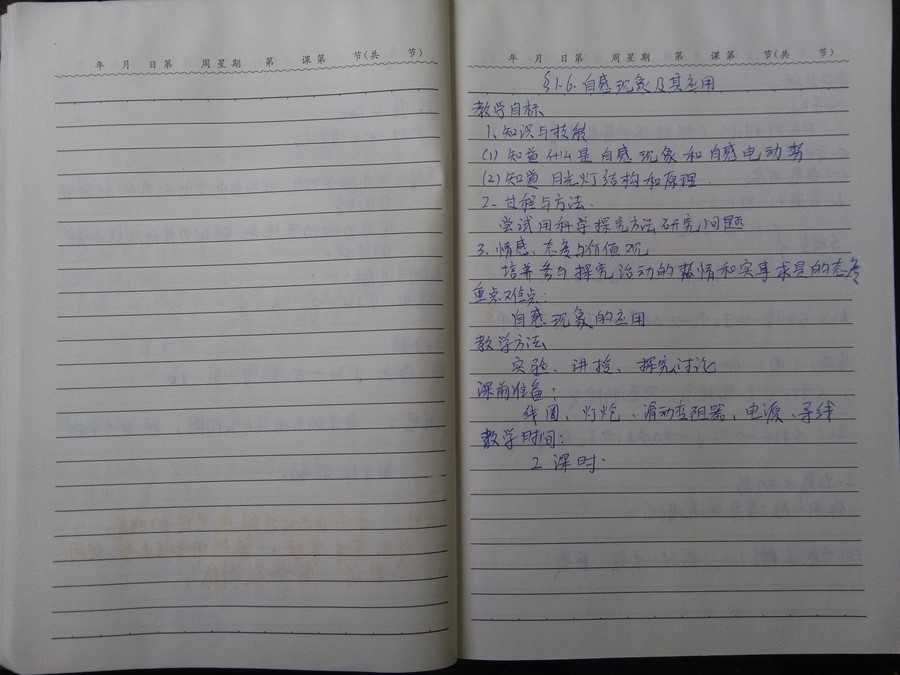 年 月 日第 周星期 第 课第 节(共 节)
年 月 日第 周星期 第 课第 节(共 节)
§1.6. 自感现象及其应用
教学目标
1. 知识与技能
(1) 知道什么是自感现象和自感电动势
(2) 知道日光灯结构和原理
2. 过程与方法.
尝试用科学探究方法研究问题
3. 情感、态度与价值观
培养参与探究活动的热情和实事求是的态度
重点难点:
自感现象的应用
教学方法
实验、讲授、探究讨论
课前准备:
线圈、灯炮、滑动变阻器、电源、导线
教学时间:
2 课时.